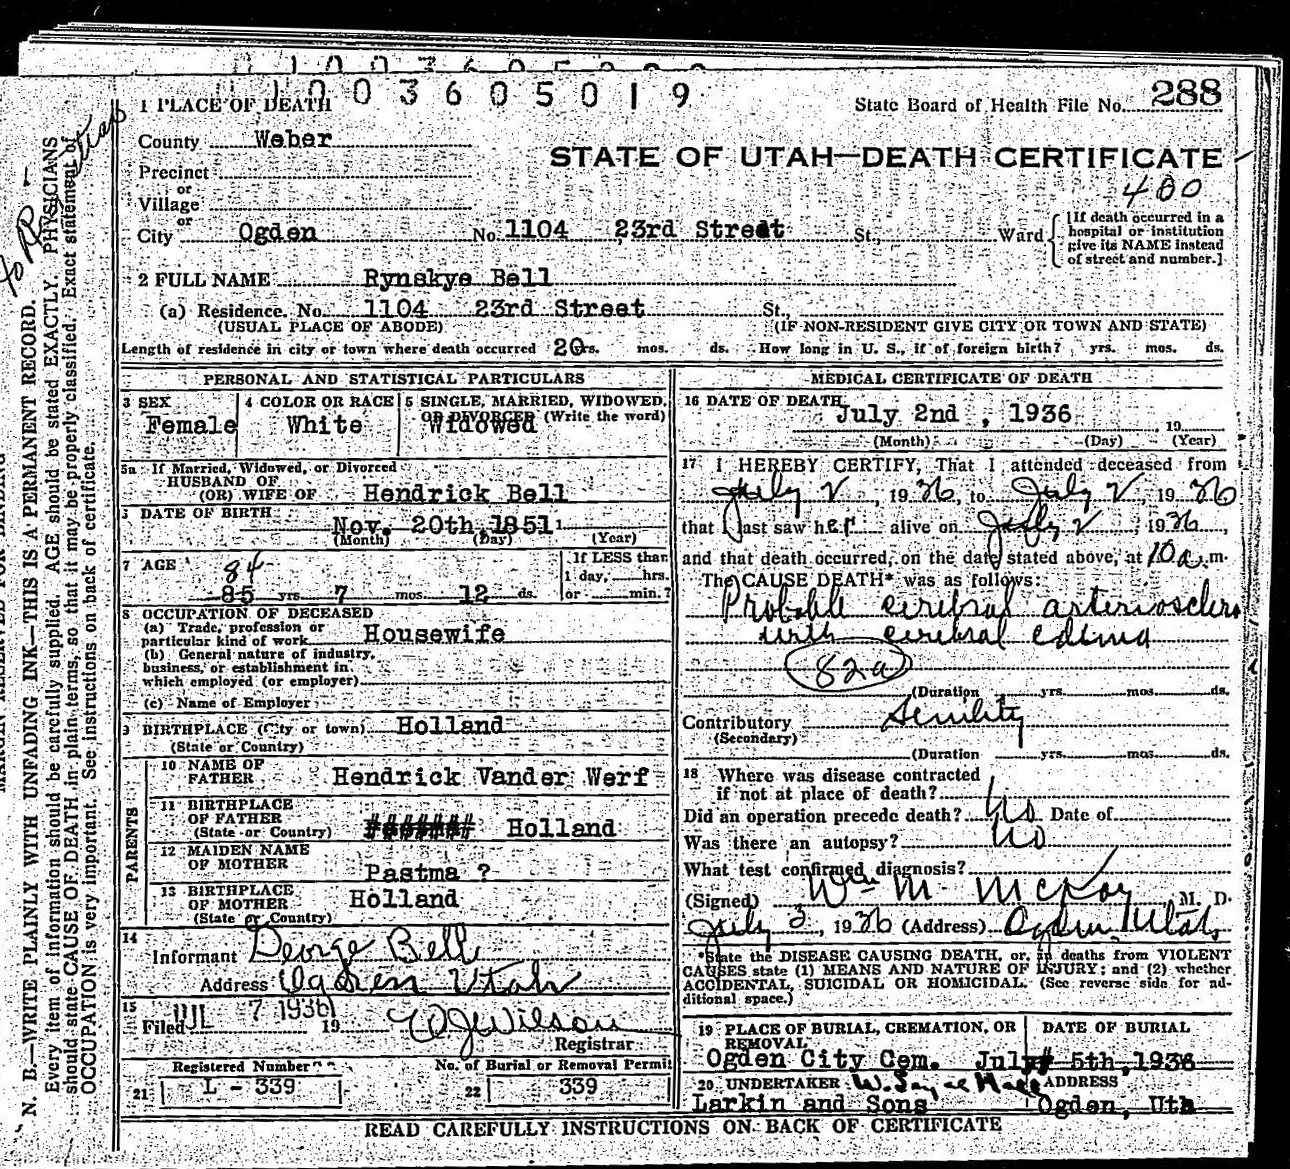 1 0 0 3 6 0 5 0 1 9
288
State Board of Health File No.
1 PLACE OF DEATH
County Weber
STATE OF UTAH—DEATH CERTIFICATE
400
Precinct
or
Village
or
City Ogden No. 1104 23rd Street St., Ward
[If death occurred in a
hospital or institution
give its NAME instead
of street and number.]
2 FULL NAME Rynskye Bell
(a) Residence. No. 1104 23rd Street St.,
(USUAL PLACE OF ABODE) (IF NON-RESIDENT GIVE CITY OR TOWN AND STATE)
Length of residence in city or town where death occurred 20 yrs. mos. ds. How long in U. S., if of foreign birth? yrs. mos. ds.
PERSONAL AND STATISTICAL PARTICULARS
3 SEX
Female
4 COLOR OR RACE
White
5 SINGLE, MARRIED, WIDOWED,
OR DIVORCED (Write the word)
Widowed
5a If Married, Widowed, or Divorced
HUSBAND OF
(OR) WIFE OF Hendrick Bell
DATE OF BIRTH
Nov. 20th 1851
(Month) (Day) (Year)
7 AGE
84
85 yrs 7 mos. 12 ds.
If LESS than
1 day, hrs.
or min.?
8 OCCUPATION OF DECEASED
(a) Trade, profession or
particular kind of work Housewife
(b) General nature of industry,
business, or establishment in
which employed (or employer)
(c) Name of Employer
9 BIRTHPLACE (City or town) Holland
(State or Country)
PARENTS
10 NAME OF
FATHER Hendrick Vander Werf
11 BIRTHPLACE
OF FATHER
(State or Country) Holland
12 MAIDEN NAME
OF MOTHER Pastma ?
13 BIRTHPLACE
OF MOTHER Holland
(State or Country)
14
Informant George Bell
Address Ogden Utah
15
Filed JUL 7 1936 19
Wilson
Registrar
Registered Number
21 L - 339
No. of Burial or Removal Permit
22 339
MEDICAL CERTIFICATE OF DEATH
16 DATE OF DEATH
July 2nd , 1936 19
(Month) (Day) (Year)
17 I HEREBY CERTIFY, That I attended deceased from
July 2, 1936, to July 2, 1936
that I last saw her alive on July 2, 1936,
and that death occurred, on the date stated above, at 10 a.m.
The CAUSE DEATH* was as follows:
Probable cerebral arterioscleros
with cerebral edima
82a
(Duration yrs. mos. ds.
Contributory Senility
(Secondary)
(Duration yrs. mos. ds.
18 Where was disease contracted
if not at place of death?
Did an operation precede death? No Date of
Was there an autopsy? No
What test confirmed diagnosis?
(Signed) Wm M McKay, M. D.
July 3, 1936 (Address) Ogden, Utah.
*State the DISEASE CAUSING DEATH, or, in deaths from VIOLENT
CAUSES state (1) MEANS AND NATURE OF INJURY; and (2) whether
ACCIDENTAL, SUICIDAL OR HOMICIDAL. (See reverse side for ad-
ditional space.)
19 PLACE OF BURIAL, CREMATION, OR
REMOVAL
Ogden City Cem.
DATE OF BURIAL
July 5th, 1936
20 UNDERTAKER
Larkin and Sons
ADDRESS
Ogden, Uta
READ CAREFULLY INSTRUCTIONS ON BACK OF CERTIFICATE
N. B.—WRITE PLAINLY WITH UNFADING INK—THIS IS A PERMANENT RECORD.
Every item of information should be carefully supplied. AGE should be stated EXACTLY. PHYSICIANS
should state CAUSE OF DEATH in plain terms, so that it may be properly classified. Exact statement of
OCCUPATION is very important. See instructions on back of certificate.